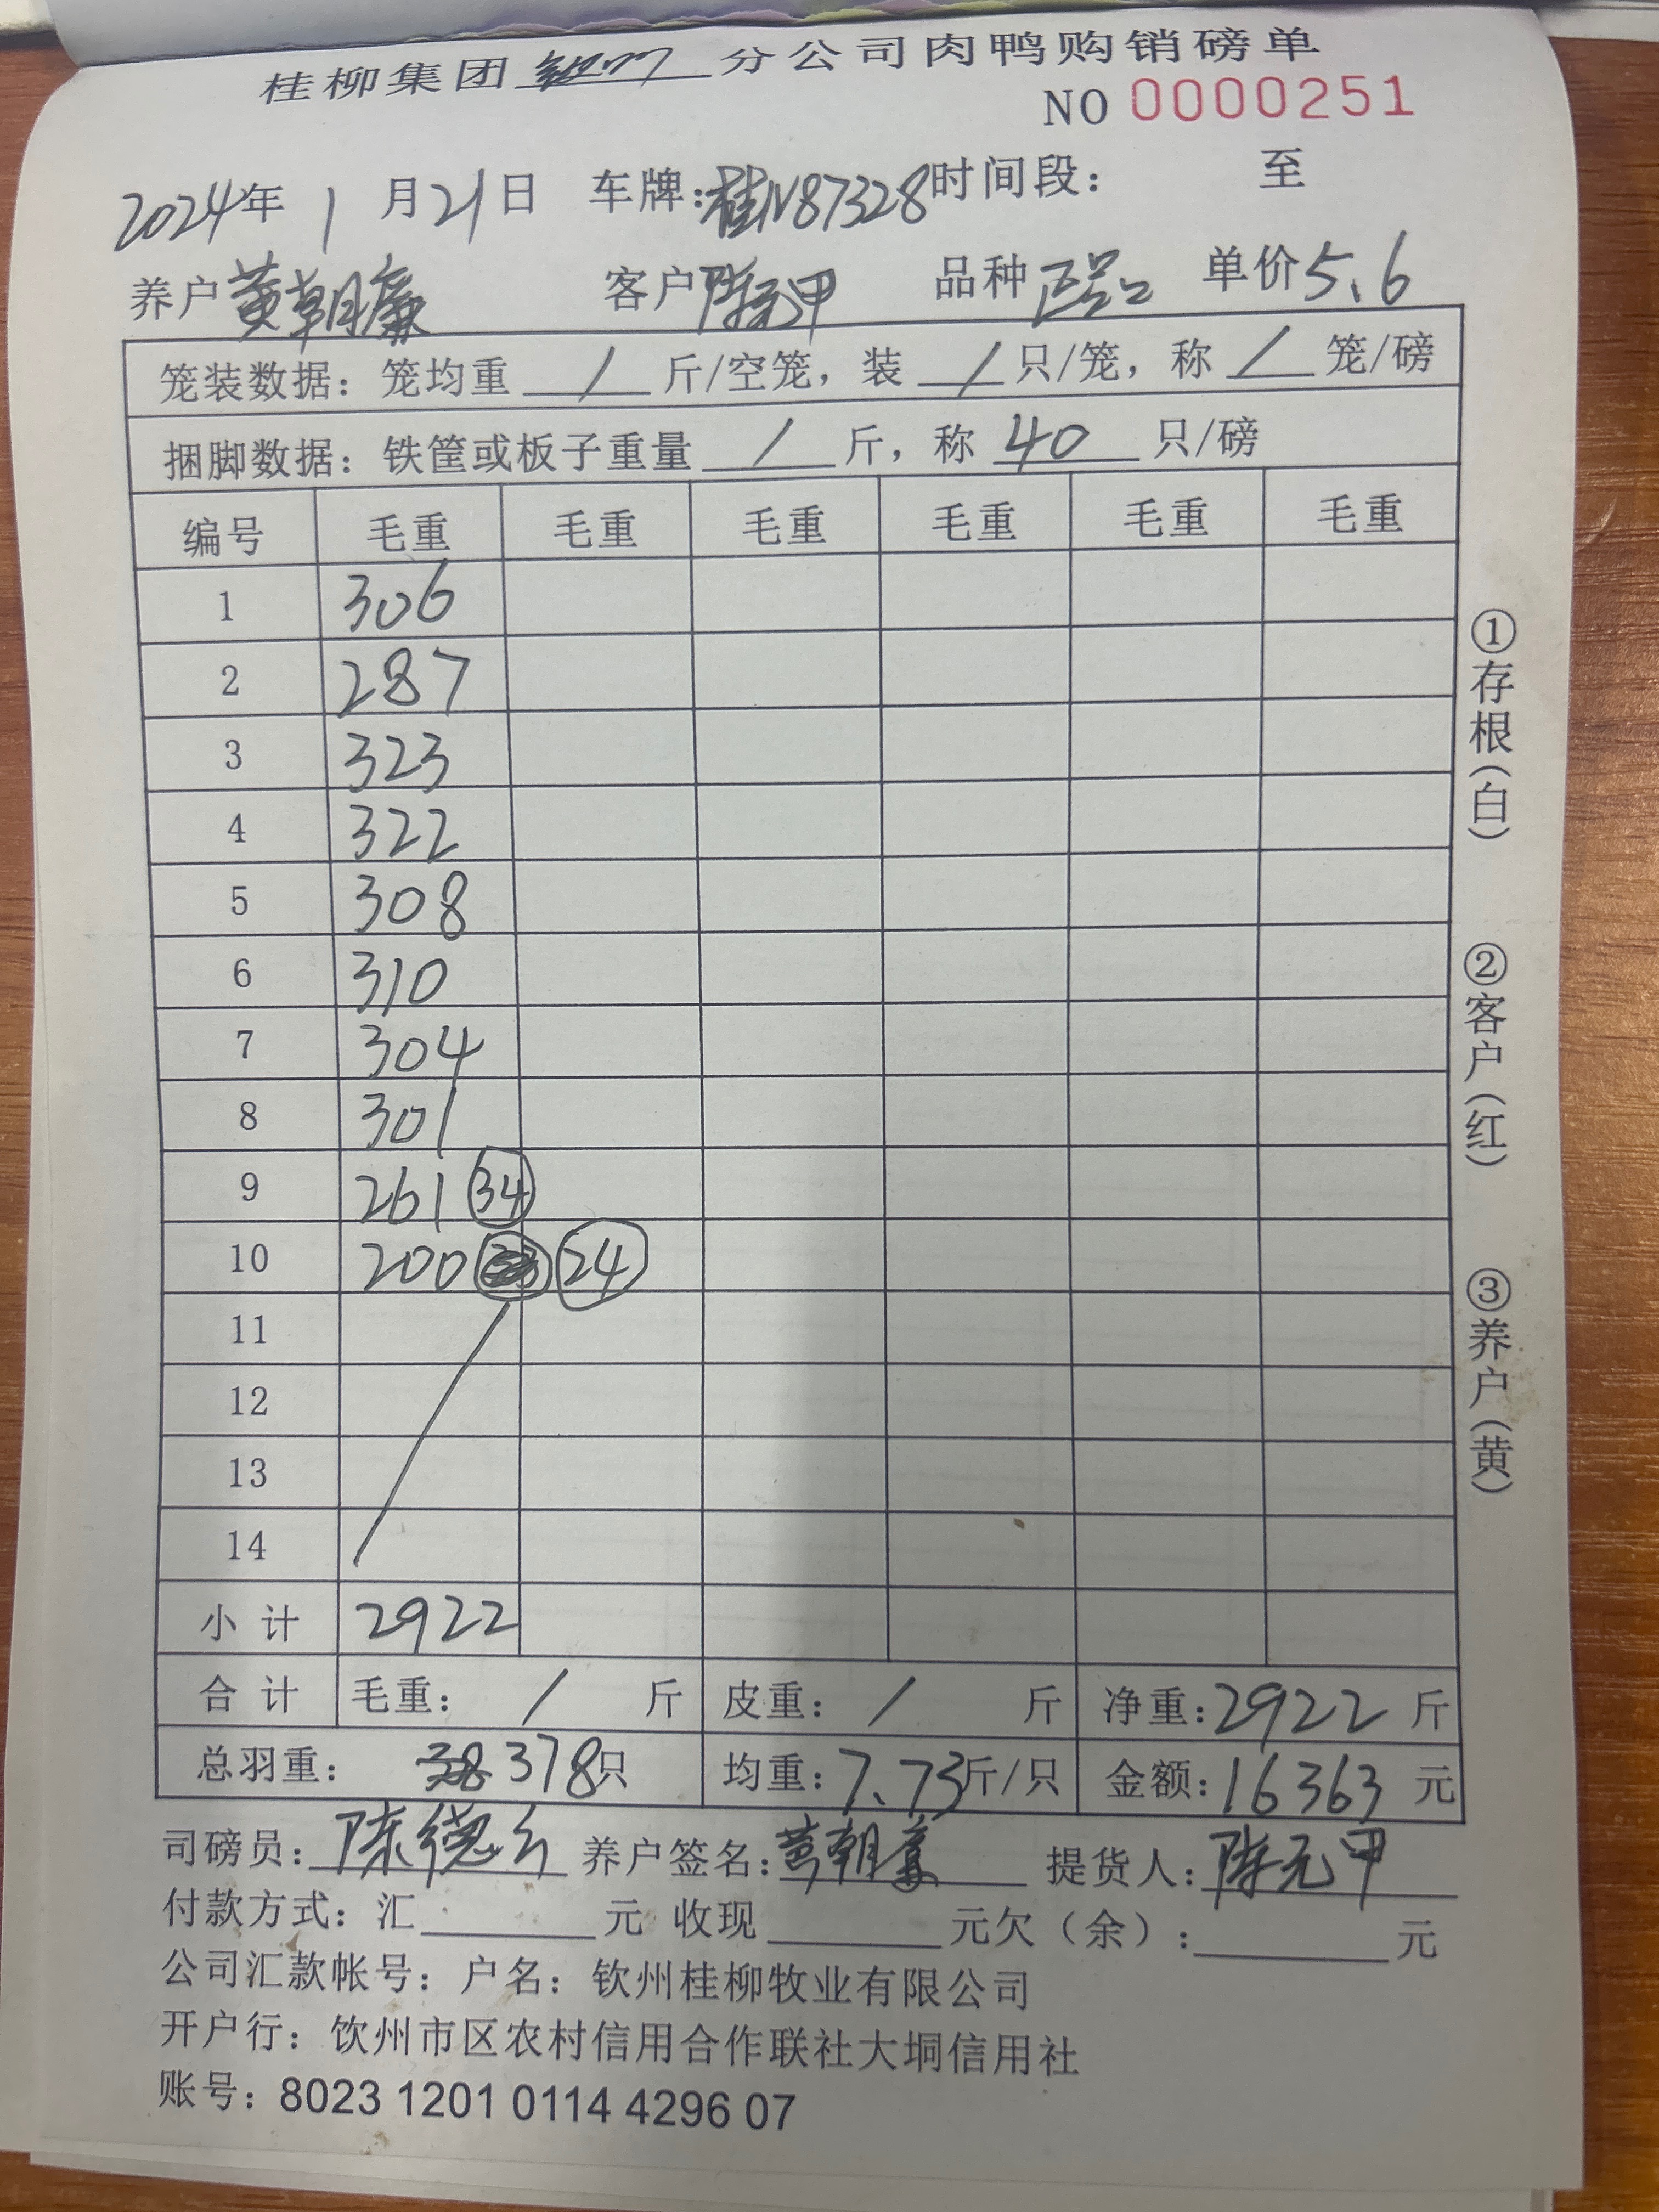 桂柳集团 分公司肉鸭购销磅单
NO 0000251
2024年 1 月21日 车牌:桂N87328时间段: 至
养户黄朝廉 客户陈元甲 品种正品 单价5.6
笼装数据: 笼均重 / 斤/空笼, 装 / 只/笼, 称 / 笼/磅
捆脚数据: 铁筐或板子重量 / 斤, 称 40 只/磅
编号 毛重 毛重 毛重 毛重 毛重 毛重
1 306
2 287
3 323
4 322
5 308
6 310
7 304
8 301
9 261 34
10 200 24
11
12
13
14
小计 2922
合计 毛重: / 斤 皮重: / 斤 净重:2922 斤
总羽重: 378只 均重:7.73斤/只 金额:16363 元
司磅员:陈德 养户签名:黄朝廉 提货人:陈元甲
付款方式: 汇 元 收现 元欠(余): 元
公司汇款帐号: 户名: 钦州桂柳牧业有限公司
开户行: 钦州市区农村信用合作联社大垌信用社
账号: 8023 1201 0114 4296 07
①存根(白)
②客户(红)
③养户(黄)